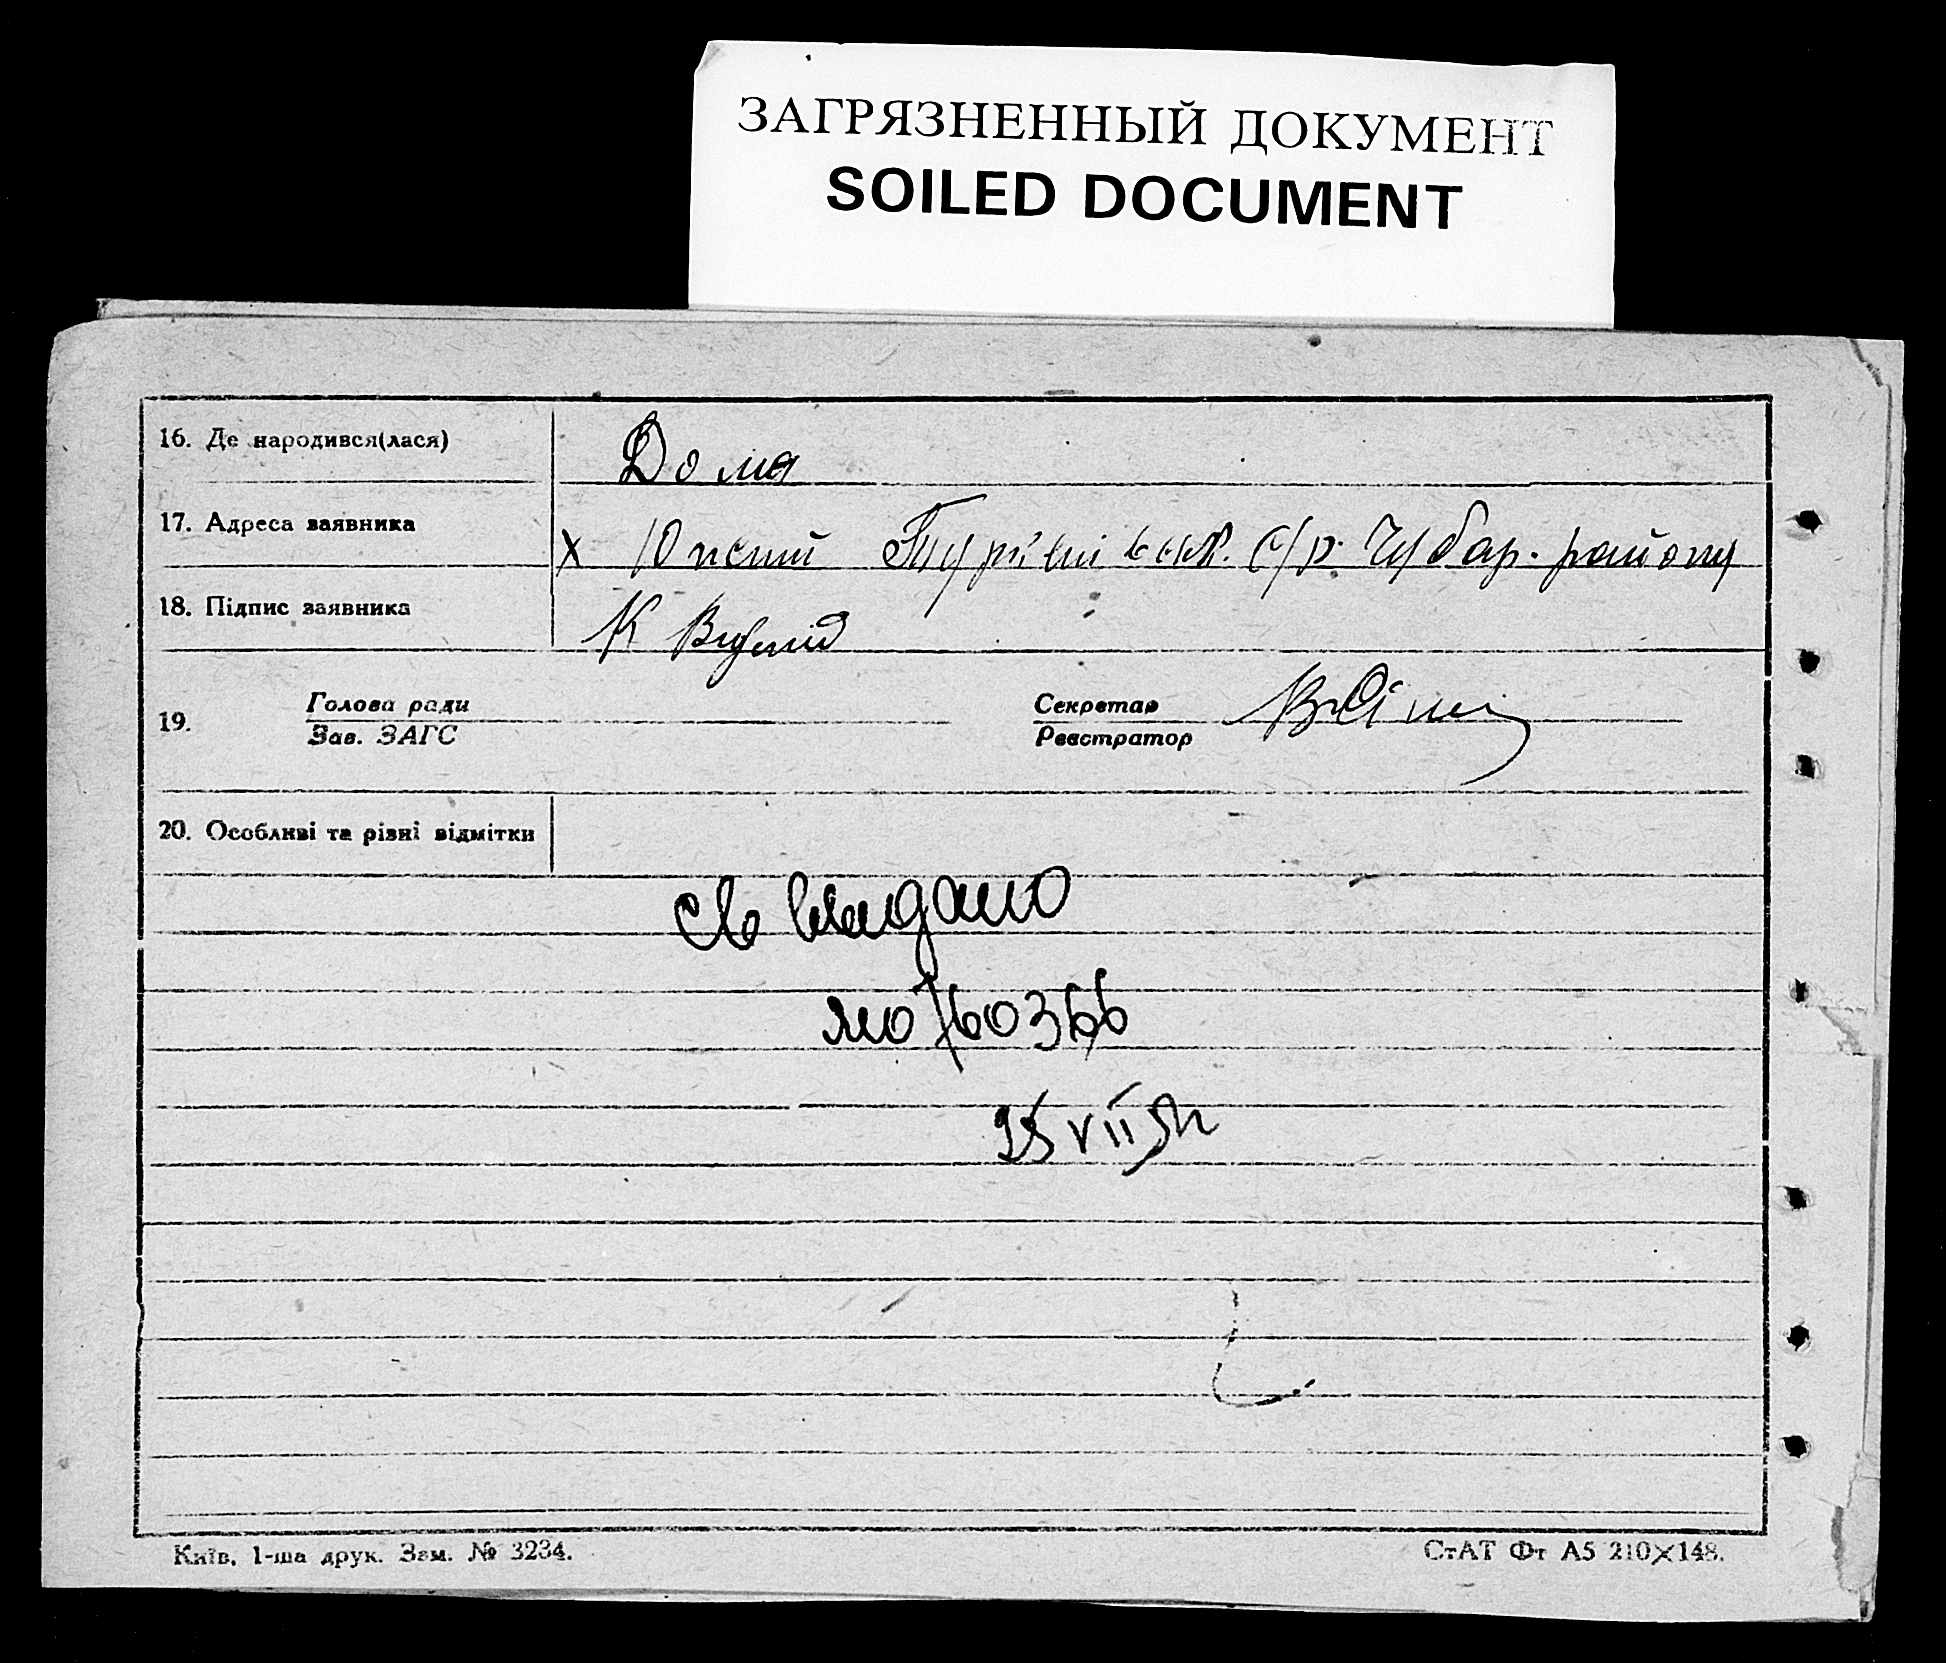 ЗАГРЯЗНЕННЫЙ ДОКУМЕНТ
SOILED DOCUMENT
16. Де народився(лася) Дома
17. Адреса заявника х с/р. Чубар. району
18. Підпис заявника К
19. Голова ради Секретар
Зав. ЗАГС Реєстратор
20. Особливі та різні відмітки
св видано
ЯЮ 160366
25 VII
Київ, 1-ша друк. Зам. № 3234. СтАТ Фт А5 210×148.